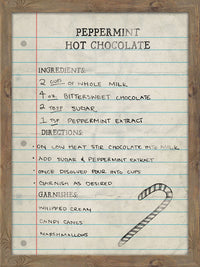 PEPPERMINT
HOT CHOCOLATE
INGREDIENTS:
2 CUPS OF WHOLE MILK
4 OZ BITTERSWEET CHOCOLATE
2 TBSP SUGAR
1 TSP PEPPERMINT EXTRACT
DIRECTIONS:
• ON LOW HEAT STIR CHOCOLATE INTO MILK
• ADD SUGAR & PEPPERMINT EXTRACT
• ONCE DISSOLVED POUR INTO CUPS
• GARNISH AS DESIRED
GARNISHES:
WHIPPED CREAM
CANDY CANES
MARSHMALLOWS